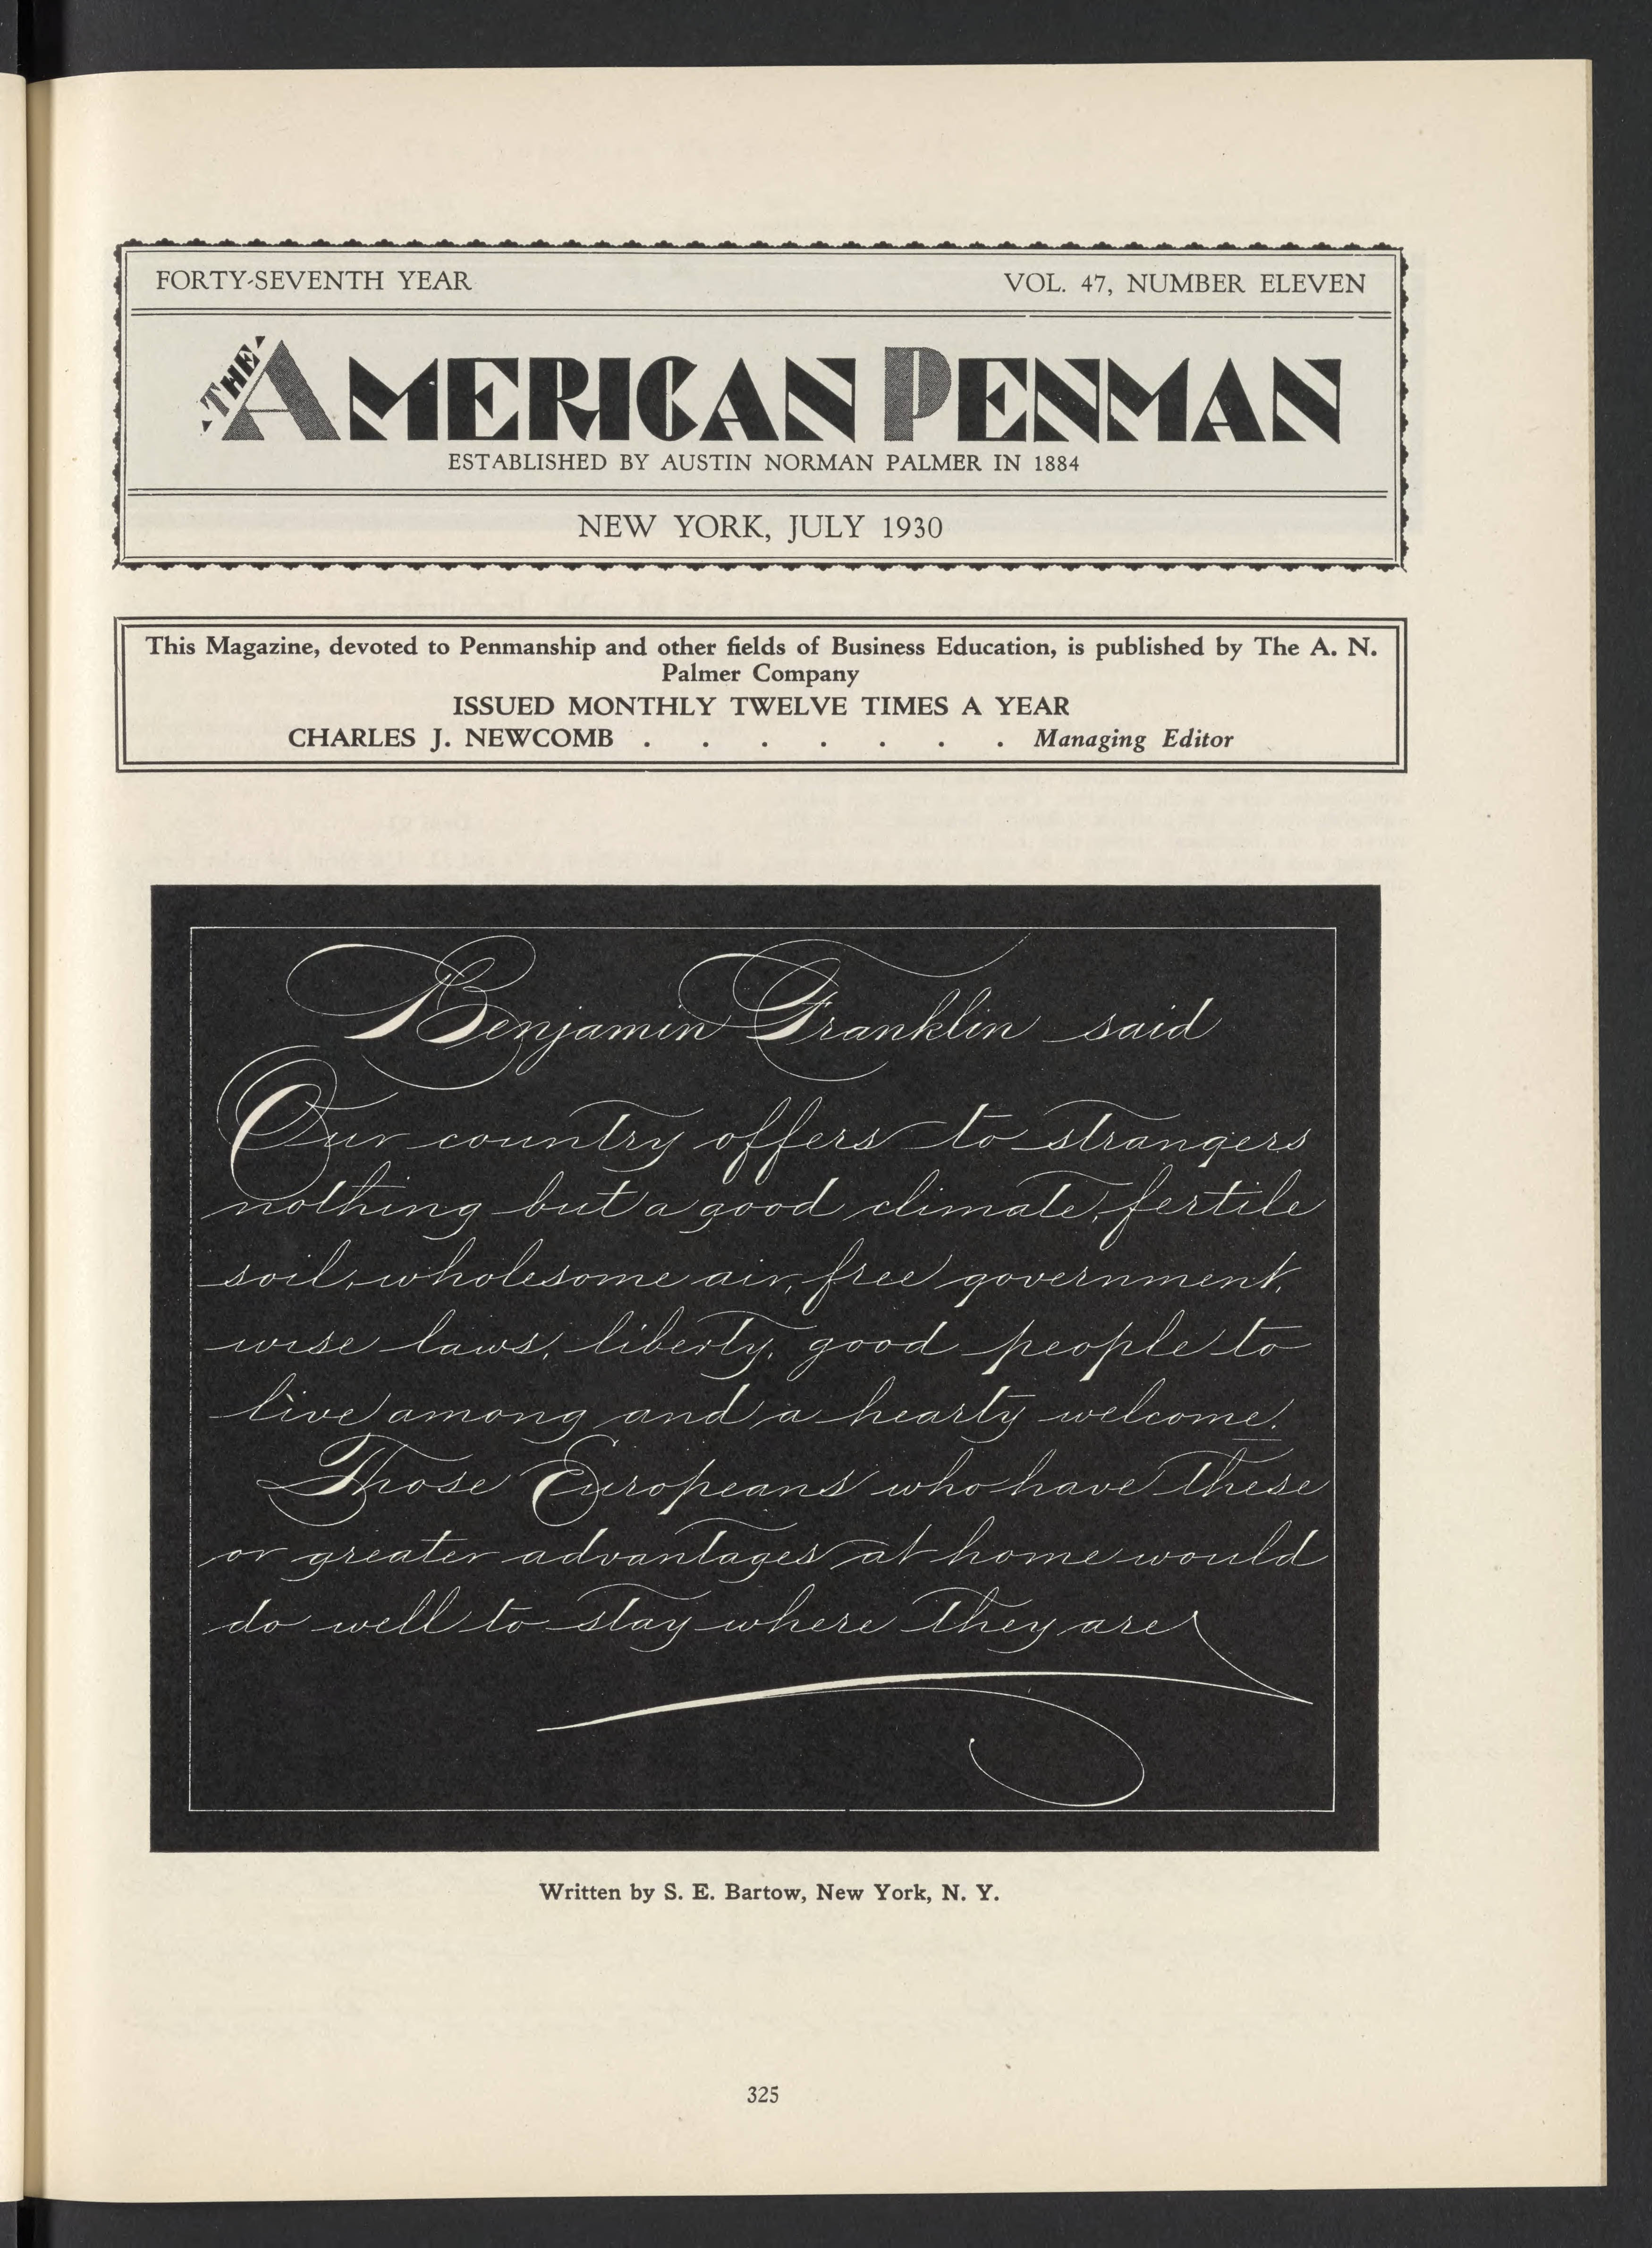 FORTY-SEVENTH YEAR VOL. 47, NUMBER ELEVEN
THE AMERICAN PENMAN
ESTABLISHED BY AUSTIN NORMAN PALMER IN 1884
NEW YORK, JULY 1930
This Magazine, devoted to Penmanship and other fields of Business Education, is published by The A. N.
Palmer Company
ISSUED MONTHLY TWELVE TIMES A YEAR
CHARLES J. NEWCOMB . . . . . . . Managing Editor
Benjamin Franklin said
Our country offers to strangers
nothing but a good climate, fertile
soil, wholesome air, free government,
wise laws, liberty, good people to
live among and a hearty welcome.
Those Europeans who have these
or greater advantages at home would
do well to stay where they are
Written by S. E. Bartow, New York, N. Y.
325